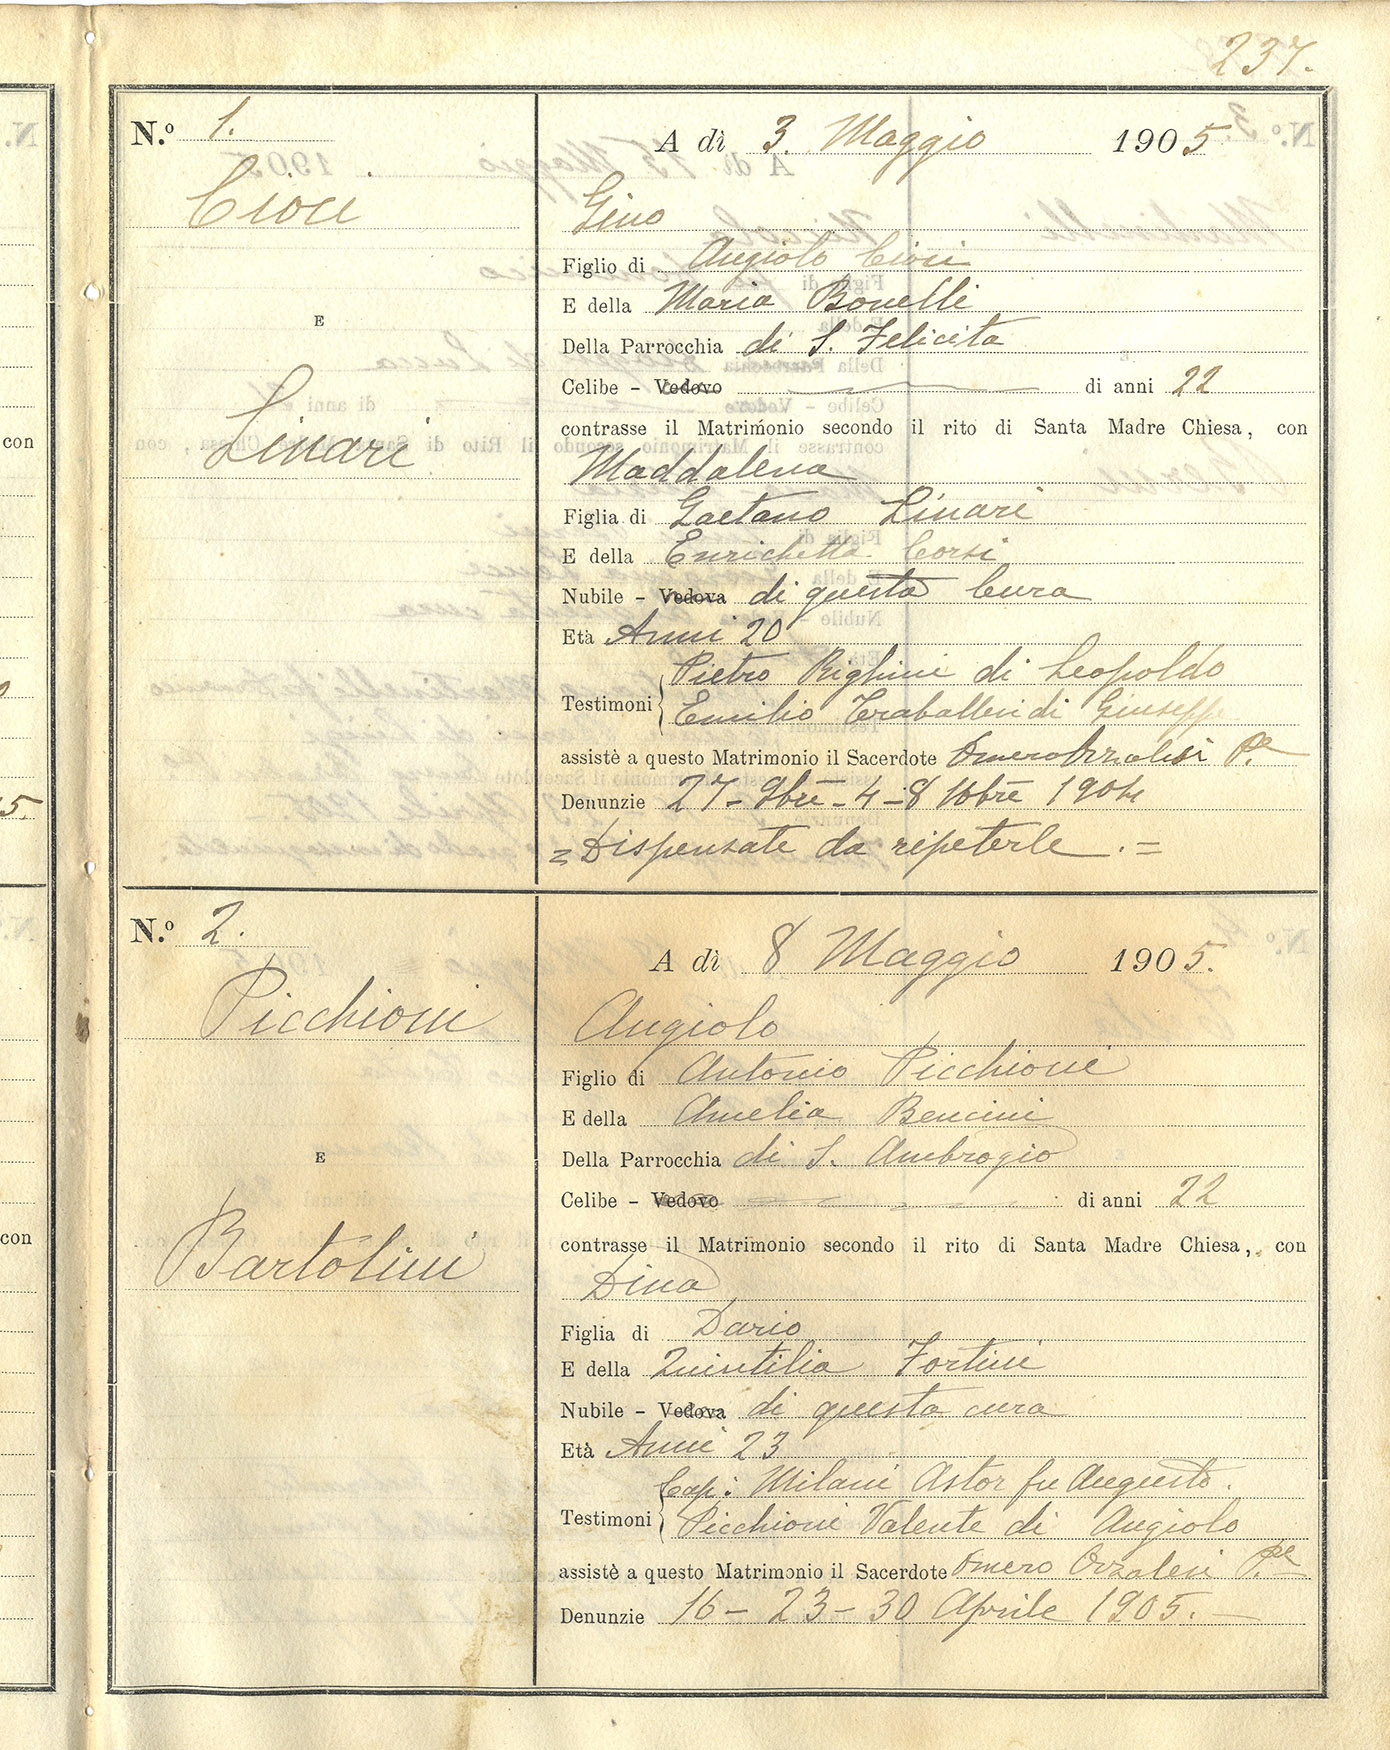 237.
N.º 1.
A dì 3. Maggio 1905
Cioci
Gino
Figlio di Angiolo Cioci
E della Maria Bonelli
E
Della Parrocchia di S. Felicita
Celibe - Vedovo di anni 22
contrasse il Matrimonio secondo il rito di Santa Madre Chiesa, con
Linari
Maddalena
Figlia di Gaetano Linari
E della Enrichetta Corsi
Nubile - Vedova di questa Cura
Età Anni 20
Pietro Righini di Leopoldo
Testimoni
Emilio Traballesi di Giuseppe
assistè a questo Matrimonio il Sacerdote Omero Orzalesi P.e
Denunzie 27 - 9bre - 4 - 8 Xbre 1904
= Dispensate da ripeterle . =
N.º 2.
A dì 8 Maggio 1905.
Picchioni
Angiolo
Figlio di Antonio Picchioni
E della Amelia Bencini
E
Della Parrocchia di S. Ambrogio
Celibe - Vedovo di anni 22
contrasse il Matrimonio secondo il rito di Santa Madre Chiesa, con
Bartolini
Dina
Figlia di Dario
E della Quintilia Fortini
Nubile - Vedova di questa cura
Età Anni 23
Cap: Milani Astor fu Augusto.
Testimoni
Picchioni Valente di Angiolo
assistè a questo Matrimonio il Sacerdote Omero Orzalesi P.e
Denunzie 16 - 23 - 30 Aprile 1905. -
con
5.
con